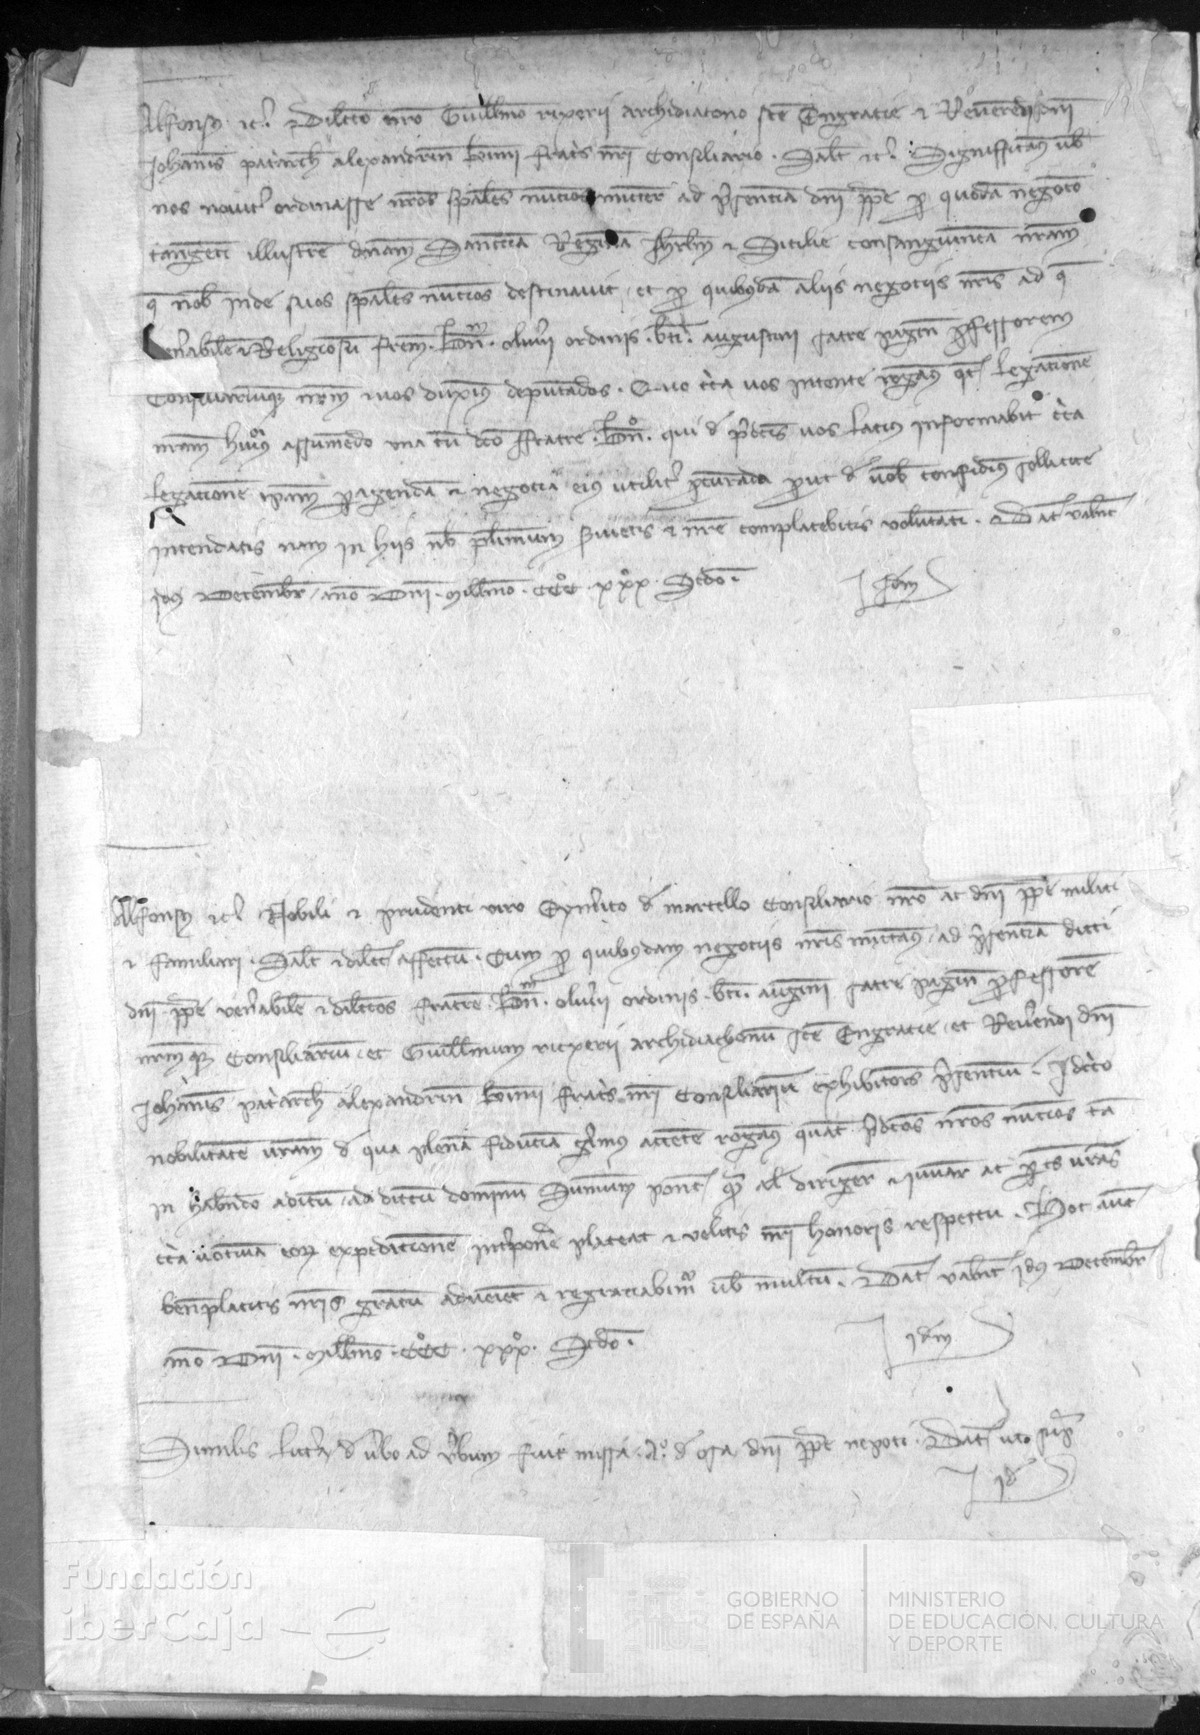 Alfonsus etc. Dilecto nro Guillmo rixerii archidiacono sce Engracie & Reuerendi dni
Johanis patarch alexandrin karimi fratris nri Consiliario. Salt etc. Significam' vob
nos nouit ordinasse nros spales nuncios mitter ad psencia dni ppe p quoda negocio
tangeti illustre dnam Sanccia Regina Jhrlm & Sicilie consanguinea nram
q nob inde suos spales nuncios destinauit et p quibusda aliis negociis nris ad q
venabile & Religiosu frem. Bn. oliuii ordinis. bti. augustini sacre pagine pfessorem
Consiliariuq nrm & vos duxim' deputados. Quo cca vos intente rogam' qt legatione
nram hui' assumedo vna cu dco ffratre. Bn. qui d pdcis vos lacius informabit cca
legacione ipam pagenda & negocia eius vtilit pcurada put d vob confidim' sollicite
intendatis nam in hiis nob plimum suietis & nre complacebitis volutati. Dat valnt
idus Decembr Ano Dni. Millmo. CCC. xxx. Scdo.
Idem
Alfonsus etc. Nobili & prudenti viro Eymico d marcello Consiliario nro ac dni ppe militi
& familiari. Salt & dilect affectum. Cum p quibusdam negociis nris mittam' ad psencia dicti
dni ppe venabile & dilectos fratre Bn. oliuii ordinis. bti. augustini sacre pagine pfessore
nrmq Consiliariu et Guillmum rixerii archidiachonu sce Engracie et Reuendi dni
Johanis patarch alexandrin karimi fratris nri Consiliariu exhibitors psentiu. Idcirco
nobilitate vram d qua plena fiducia gerimus attente rogam' quat pdcos nros nuncios ta
in habndo aditu ad dictu dominu Summum pont q al dirigere & iuuar ac ptes vras
cca votiua eor expedicione intponere placeat & velitis nri honoris respectu. Hoc aut
benplacitis nris gratu adueiet & regraciabimr vob multu. Dat valnt idus Decembr
Ano Dni. Millmo. CCC. xxx. Scdo.
idem
Similis littera d vbo ad vbum fuit missa. A. d osa dni ppe nepoti. Dat vt sup
id
Fundación
iberCaja
GOBIERNO
DE ESPAÑA
MINISTERIO
DE EDUCACIÓN, CULTURA
Y DEPORTE